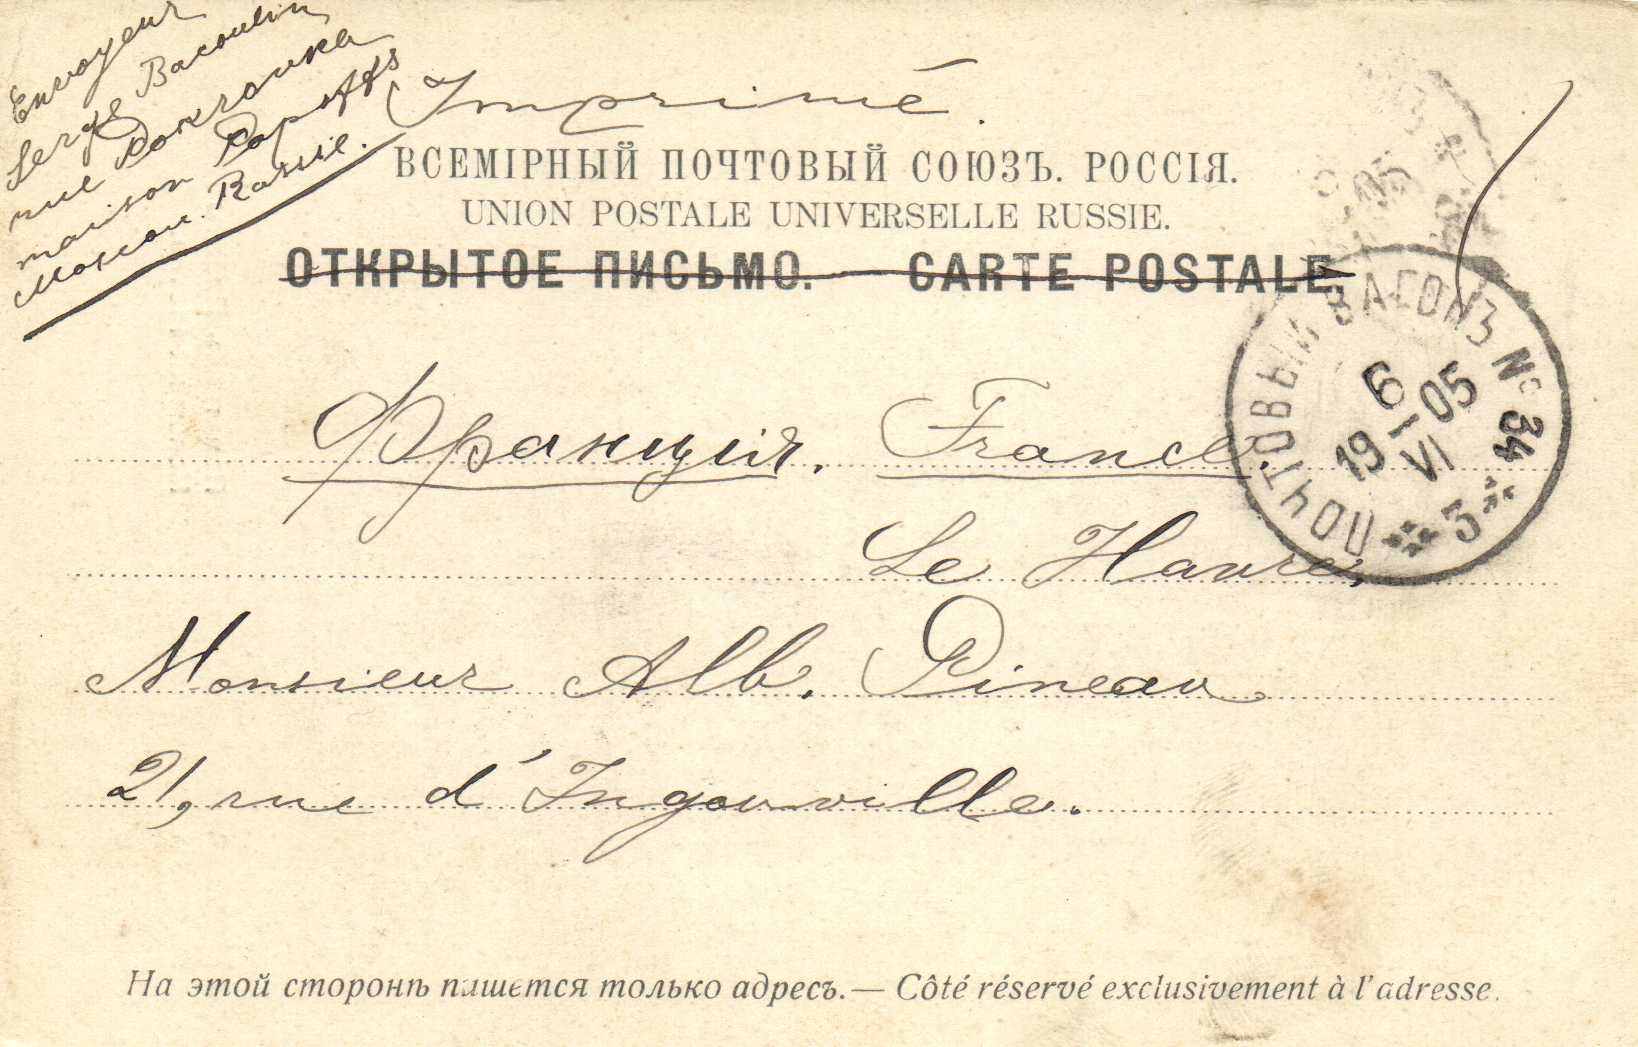 Envoyeur
Serge Bacoulin
rue Pokrovka
maison Popoffs
Moscou. Russie.
Imprimé.
ВСЕМІРНЫЙ ПОЧТОВЫЙ СОЮЗЪ. РОССІЯ.
UNION POSTALE UNIVERSELLE RUSSIE.
ОТКРЫТОЕ ПИСЬМО. CARTE POSTALE.
ПОЧТОВЫЙ ВАГОНЪ № 34
6
VI
19 05
3
Франція. France.
Le Havre,
Monsieur Alb. Pineau
21, rue d'Ingouville.
На этой сторонѣ пишется только адресъ. — Côté réservé exclusivement à l'adresse.